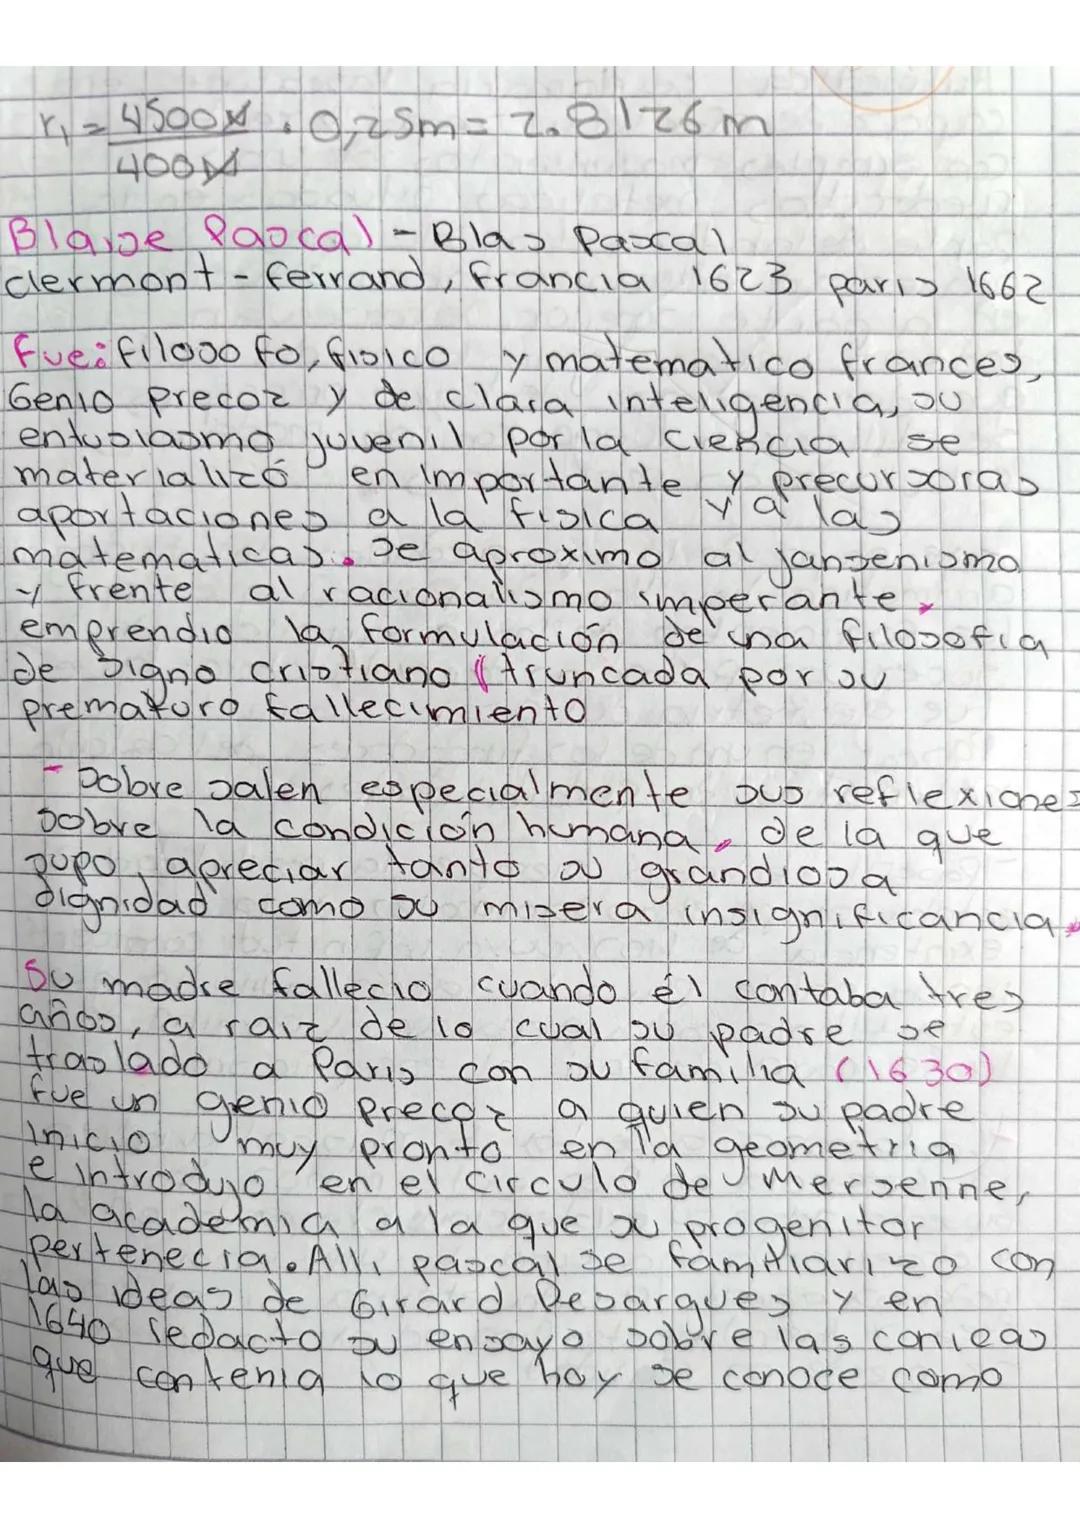 r₁ = 4500N/400N . 0,25m = 2.8126 m
Blaise Pascal - Blas Pascal
clermont - ferrand, francia 1623 paris 1662
fue: filosofo, fisico y matematico frances,
Genio precoz y de clara inteligencia, su
entusiasmo juvenil por la ciencia se
materializó en importante y precursoras
aportaciones a la fisica y a las
matematicas. Se aproximo al jansenismo
y frente al racionalismo imperante.
emprendio la formulación de una filosofia
de signo cristiano (truncada por su
prematuro fallecimiento
- sobre salen especialmente sus reflexiones
sobre la condición humana, de la que
supo, apreciar tanto su grandiosa
dignidad como su misera insignificancia.
Su madre fallecio cuando él contaba tres
años, a raiz de lo cual su padre se
traslado a Paris con su familia (1630)
fue un genio precoz a quien su padre
inicio muy pronto en la geometria
e introdujo en el circulo de Mersenne,
la academia a la que su progenitor
pertenecia. Alli pascal se familiarizo con
las ideas de Girard Desargues y en
1640 redacto su ensayo sobre las conicas
que contenia lo que hoy se conoce como